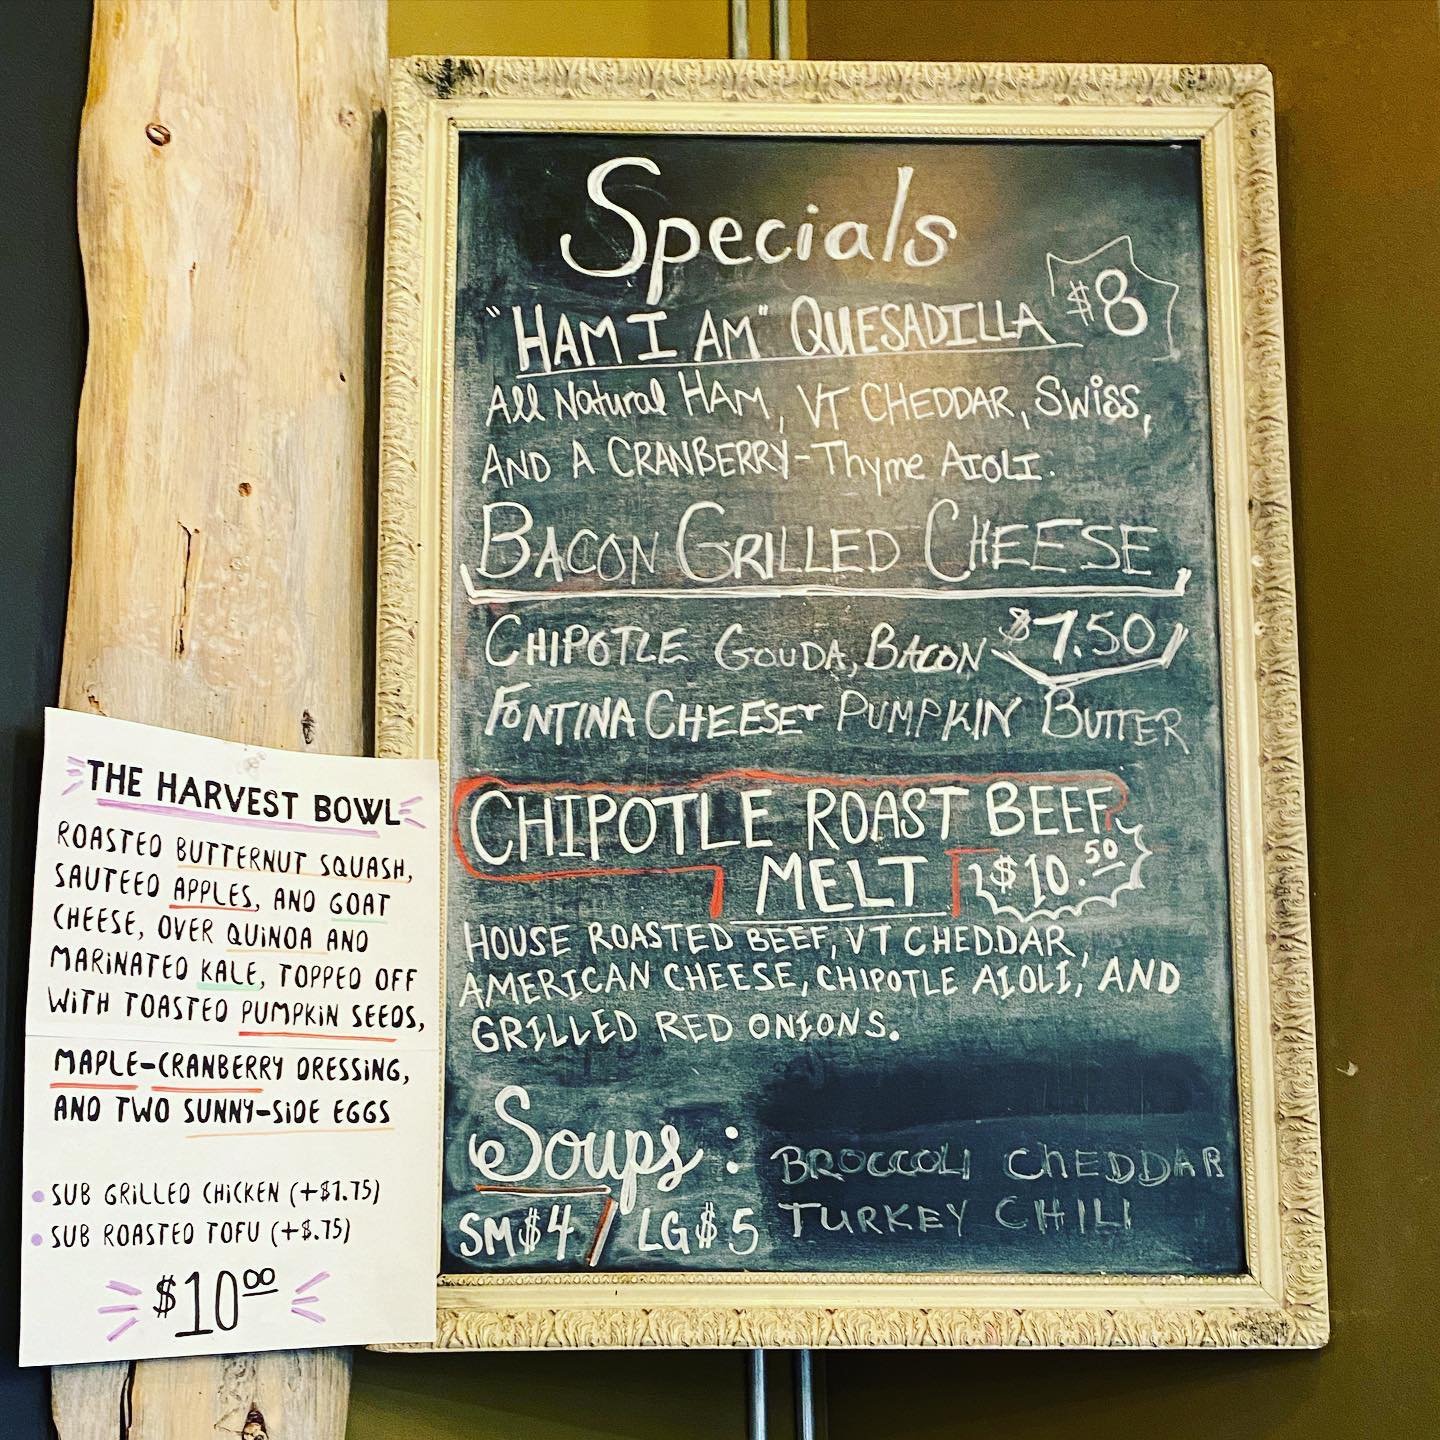 Specials
"HAM I AM" QUESADILLA $8
All Natural HAM, VT CHEDDAR, SWiSS,
AND A CRANBERRY-Thyme AIOLI.
BACON GRILLED CHEESE
CHIPOTLE GOUDA, BACON $7.50
FONTINA CHEESE + PUMPKIN BUTTER
CHIPOTLE ROAST BEEF
MELT $10.50
HOUSE ROASTED BEEF, VT CHEDDAR,
AMERICAN CHEESE, CHIPOTLE AIOLI, AND
GRILLED RED ONIONS.
Soups: BROCCOLI CHEDDAR
SM $4 / LG $5 TURKEY CHILI
THE HARVEST BOWL
ROASTED BUTTERNUT SQUASH,
SAUTEED APPLES, AND GOAT
CHEESE, OVER QUiNOA AND
MARiNATED KALE, TOPPED OFF
WiTH TOASTED PUMPKiN SEEDS,
MAPLE-CRANBERRY DRESSiNG,
AND TWO SUNNY-SiDE EGGS
• SUB GRiLLED CHiCKEN (+$1.75)
• SUB ROASTED TOFU (+$.75)
$10.00